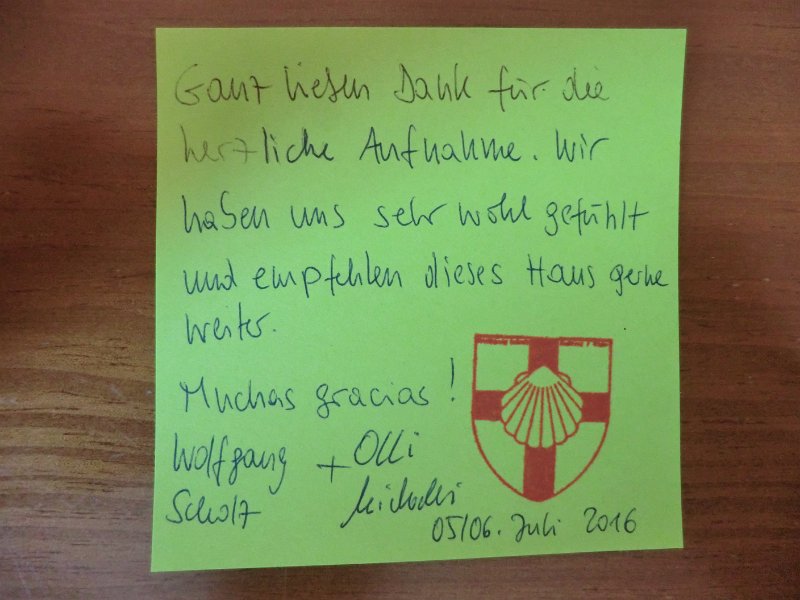 Ganz lieben Dank für die
herzliche Aufnahme. Wir
haben uns sehr wohl gefühlt
und empfehlen dieses Haus gerne
weiter.
Muchas gracias!
Wolfgang + Olli
Scholz
05/06. Juli 2016